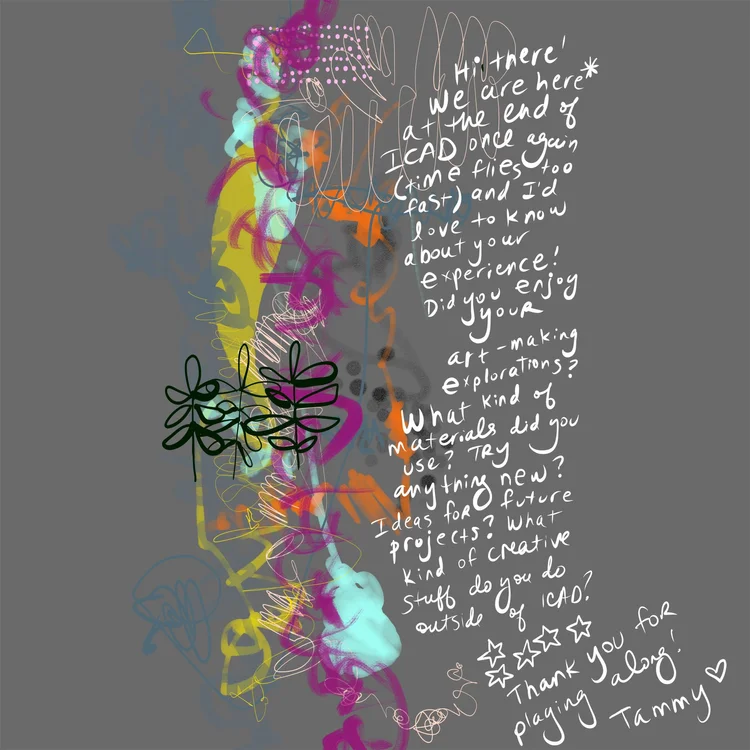 Hi there!
We are here*
at the end of
ICAD once again
(time flies too
fast) and I'd
love to know
about your
experience!
Did you enjoy
your
art-making
explorations?
What kind of
materials did you
use? Try
anything new?
Ideas for future
projects? What
kind of creative
stuff do you do
outside of ICAD?
☆☆☆☆
☆
Thank you for
playing along!
Tammy ♡